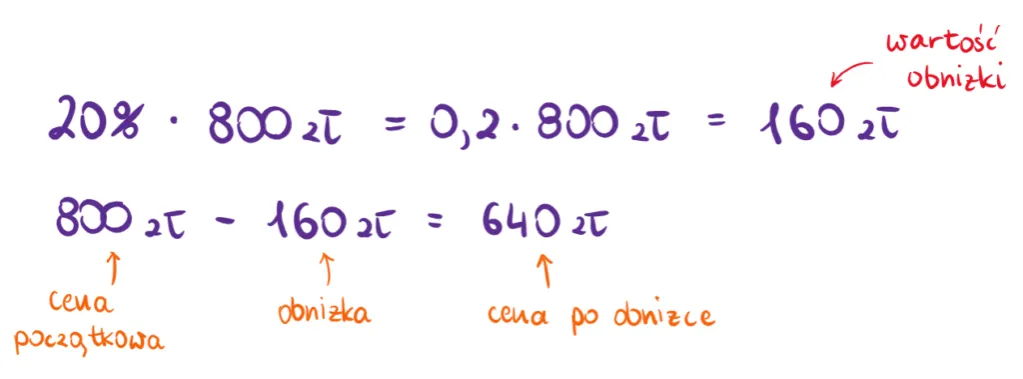 wartość
obniżki
20% · 800 zł = 0,2 · 800 zł = 160 zł
800 zł - 160 zł = 640 zł
cena
początkowa
obniżka
cena po obniżce